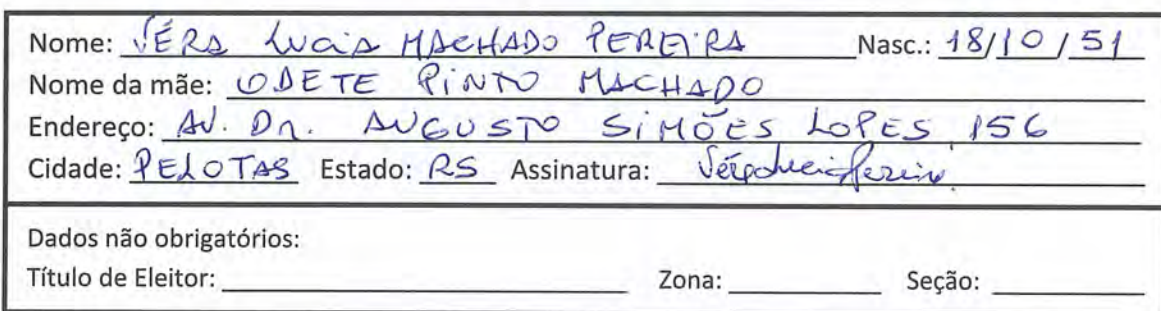 Nome: VÉRA LUCIA MACHADO PEREIRA Nasc.: 18/10/51
Nome da mãe: ODETE PINTO MACHADO
Endereço: AV. Dr. AUGUSTO SIMÕES LOPES 156
Cidade: PELOTAS Estado: RS Assinatura: Véra Lucia Pereira
Dados não obrigatórios:
Título de Eleitor: Zona: Seção: